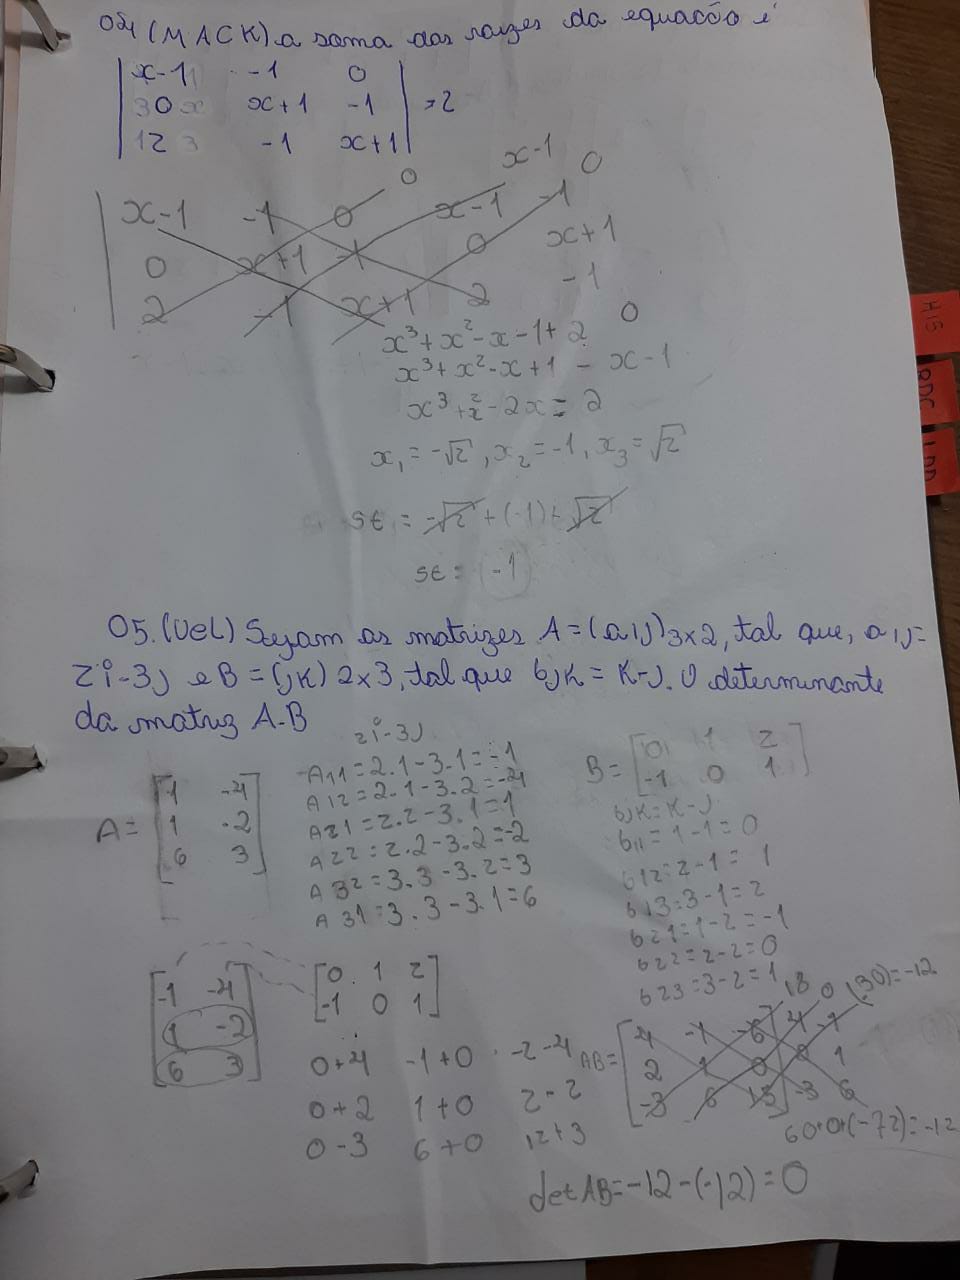 04 (MACK) a soma das raizes da equação é
| x-1 -1 0 |
| 0 x+1 -1 | = 2
| 2 -1 x+1 |
0 x-1 0
x-1 -1 0 x-1 -1
0 x+1 -1 0 x+1
2 -1 x+1 2 -1
0
x³+x²-x-1+2
x³+x²-x+1 - x-1
x³+x²-2x = 2
x₁ = -√2, x₂ = -1, x₃ = √2
SE₁ = -√2 + (-1) + √2
SE = (-1)
05. (Uel) Sejam as matrizes A = (aij)3x2, tal que, aij =
2i-3j e B = (jk) 2x3, tal que bjk = K-j. O determinante
da matriz A.B
2i-3j
A = [ -1 -4
1 -2
6 3 ]
A11 = 2.1-3.1 = -1
A12 = 2.1-3.2 = -4
A21 = 2.2-3.1 = 1
A22 = 2.2-3.2 = -2
A32 = 3.3-3.2 = 3
A31 = 3.3-3.1 = 6
B = [ 0 1 2
-1 0 1 ]
bjk = K-j
b11 = 1-1 = 0
b12 = 2-1 = 1
b13 = 3-1 = 2
b21 = 1-2 = -1
b22 = 2-2 = 0
b23 = 3-2 = 1
[ -1 -4
1 -2
6 3 ]
[ 0 1 2
-1 0 1 ]
0+4 -1+0 -2-4
0+2 1+0 2-2
0-3 6+0 12+3
18 0 (-30) = -12
AB = [ 4 -1 -6 ] 4 -1
2 1 0 2 1
-3 6 15 -3 6
60+0+(-72) = -12
det AB = -12-(-12) = 0
HIS
RDC
LDD